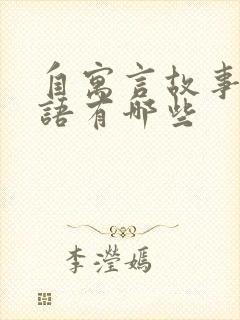 自寓言故事
語有哪些
李滢嫣